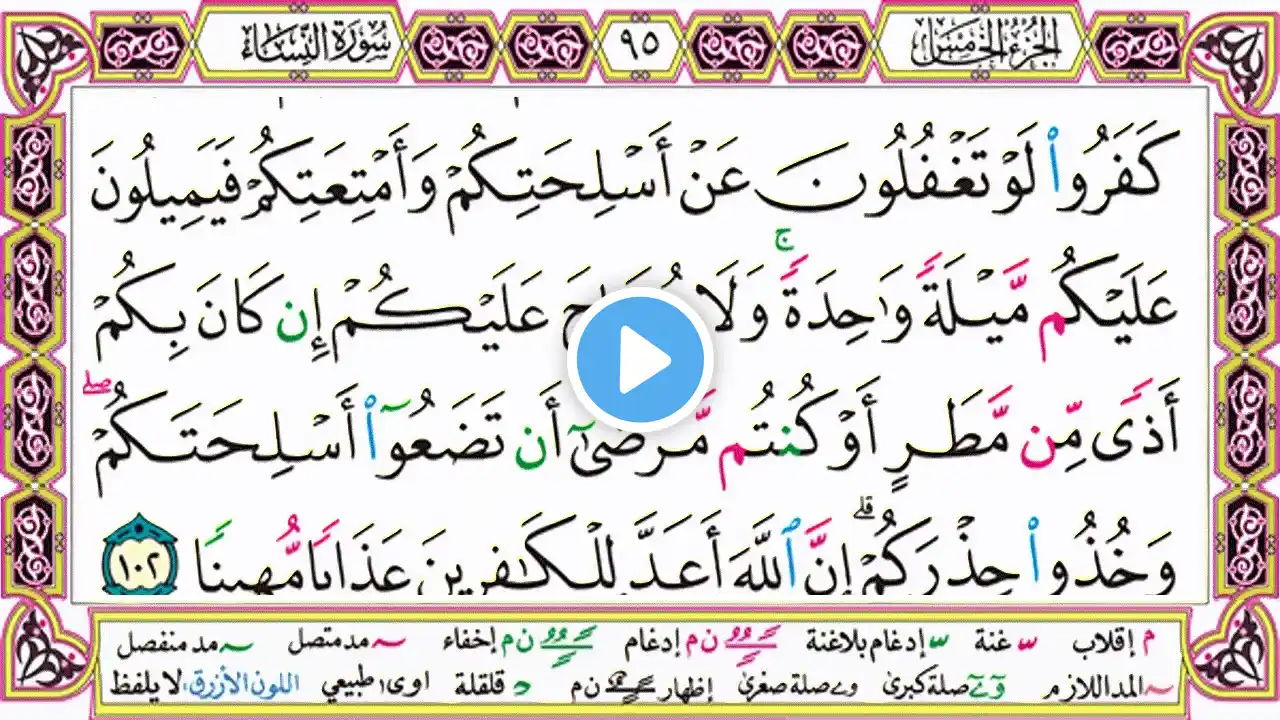 الجزء الخامس ٩٥ سورة النساء
كَفَرُوا۟ لَوْ تَغْفُلُونَ عَنْ أَسْلِحَتِكُمْ وَأَمْتِعَتِكُمْ فَيَمِيلُونَ
عَلَيْكُم مَّيْلَةً وَٰحِدَةً ۚ وَلَا عَلَيْكُمْ إِن كَانَ بِكُمْ
أَذًى مِّن مَّطَرٍ أَوْ كُنتُم مَّرْضَىٰٓ أَن تَضَعُوٓا۟ أَسْلِحَتَكُمْ ۖ
وَخُذُوا۟ حِذْرَكُمْ ۗ إِنَّ ٱللَّهَ أَعَدَّ لِلْكَٰفِرِينَ عَذَابًا مُّهِينًا ١٠٢
م إقلاب غنة إدغام بلاغنة ن م إدغام ن م إخفاء مد متصل مد منفصل
المد اللازم صلة كبرى وے صلة صغرى إظهار ن م د قلقلة اوى طبيعي اللون الأزرق لا يلفظ